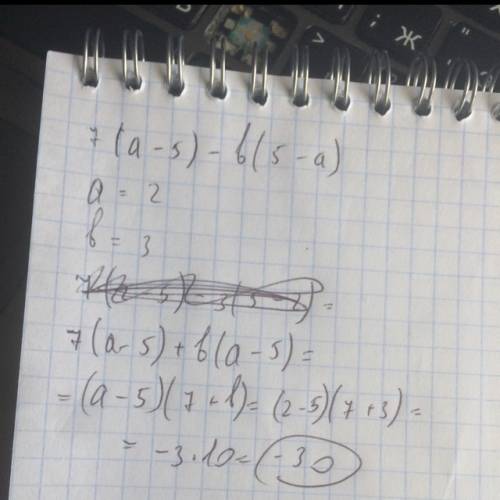 7(a-5)-b(5-a)
a = 2
b = 3
7(a-5)+b(a-5)=
=(a-5)(7+b)=(2-5)(7+3)=
= -3·10=-30